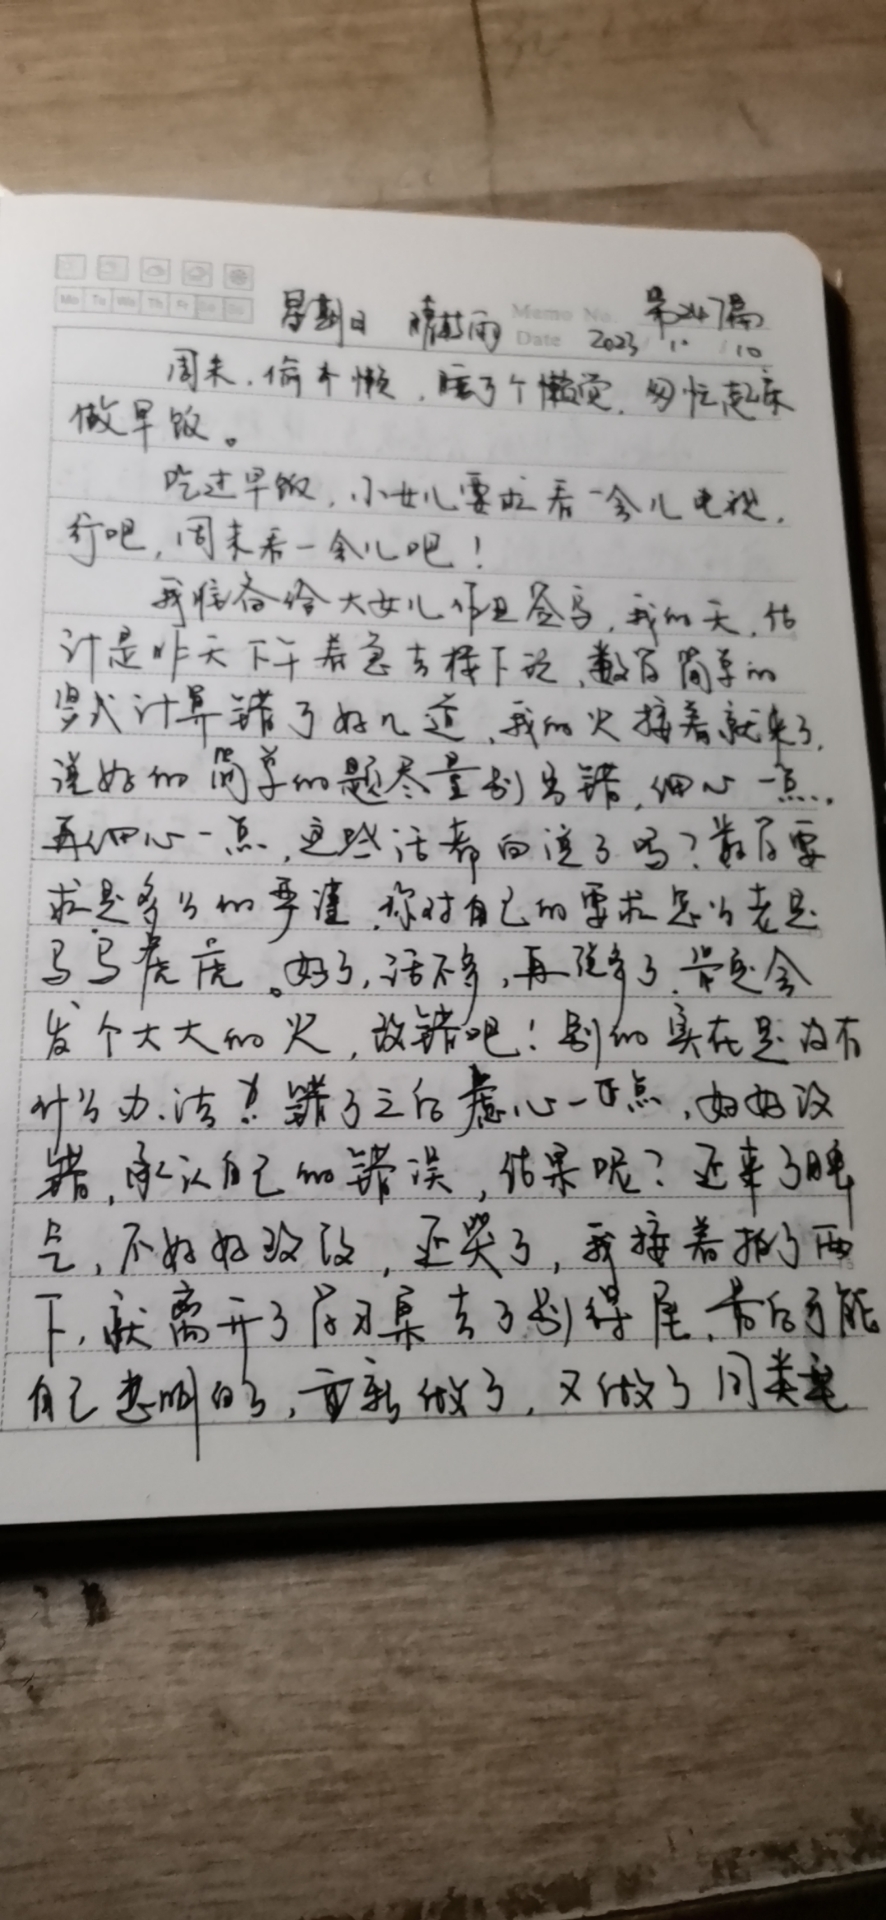 Mo Tu We Th Fr Sa Su
星期日 晴转雨 Memo No. 第247篇
Date 2023 / 10 / 10
周末，偷个懒，睡了个懒觉，匆忙起床
做早饭。
吃过早饭，小女儿要求看一会儿电视，
行吧，周末看一会儿吧！
我准备给大女儿作业签字，我的天，估
计是昨天下午着急去楼下玩，数学简单的
竖式计算错了好几道，我的火接着就来了，
说好的简单的题尽量别出错，细心一点，
再细心一点，这些话都白说了吗？数学要
求是多么的严谨，你对自己的要求怎么老是
马马虎虎。好了，话不多，再说多了，肯定会
发个大大的火，改错吧！别的实在是没有
什么办法！错了之后虚心一点，好好改
错，承认自己的错误，结果呢？还来了脾
气，不好好改改，还哭了，我接着拍了两
下，就离开了学习桌去了别得屋，最后可能
自己想明白了，重新做了，又做了同类型